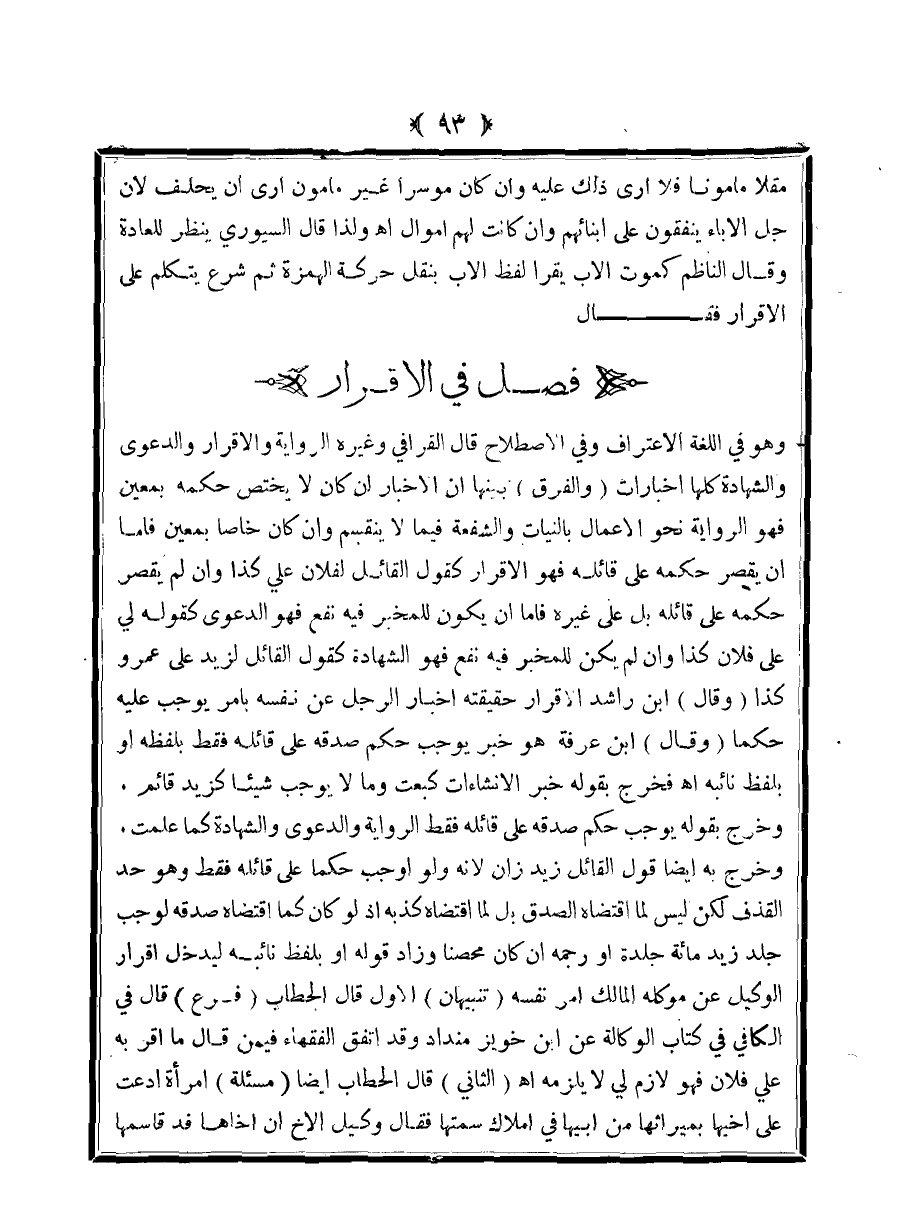 ﴿ ٩٣ ﴾
مقلا مامونا فلا ارى ذلك عليه وان كان موسرا غير مامون ارى ان يحلف لان
جل الاباء ينفقون على ابنائهم وان كانت لهم اموال اه ولذا قال السيوري ينظر للعادة
وقال الناظم كموت الاب يقرا لفظ الاب بنقل حركة الهمزة ثم شرع يتكلم على
الاقرار فقال
فصل في الاقرار
وهو في اللغة الاعتراف وفي الاصطلاح قال القرافي وغيره الرواية والاقرار والدعوى
والشهادة كلها اخبارات ( والفرق ) بينها ان الاخبار ان كان لا يختص حكمه بمعين
فهو الرواية نحو الاعمال بالنيات والشفعة فيما لا ينقسم وان كان خاصا بمعين فاما
ان يقصر حكمه على قائله فهو الاقرار كقول القائل لفلان علي كذا وان لم يقصر
حكمه على قائله بل على غيره فاما ان يكون للمخبر فيه نفع فهو الدعوى كقوله لي
على فلان كذا وان لم يكن للمخبر فيه نفع فهو الشهادة كقول القائل لزيد على عمرو
كذا ( وقال ) ابن راشد الاقرار حقيقته اخبار الرجل عن نفسه بامر يوجب عليه
حكما ( وقال ) ابن عرفة هو خبر يوجب حكم صدقه على قائله فقط بلفظه او
بلفظ نائبه اه فخرج بقوله خبر الانشاءات كبعت وما لا يوجب شيئا كزيد قائم .
وخرج بقوله يوجب حكم صدقه على قائله فقط الرواية والدعوى والشهادة كما علمت .
وخرج به ايضا قول القائل زيد زان لانه ولو اوجب حكما على قائله فقط وهو حد
القذف لكن ليس لما اقتضاه الصدق بل لما اقتضاه كذبه اذ لو كان كما اقتضاه صدقه لوجب
جلد زيد مائة جلدة او رجمه ان كان محصنا وزاد قوله او بلفظ نائبه ليدخل اقرار
الوكيل عن موكله المالك امر نفسه ( تنبيهان ) الاول قال الحطاب ( فرع ) قال في
الكافي في كتاب الوكالة عن ابن خويز منداد وقد اتفق الفقهاء فيمن قال ما اقر به
علي فلان فهو لازم لي لا يلزمه اه ( الثاني ) قال الحطاب ايضا ( مسئلة ) امرأة ادعت
على اخيها بميراثها من ابيها في املاك سمتها فقال وكيل الاخ ان اخاها قد قاسمها